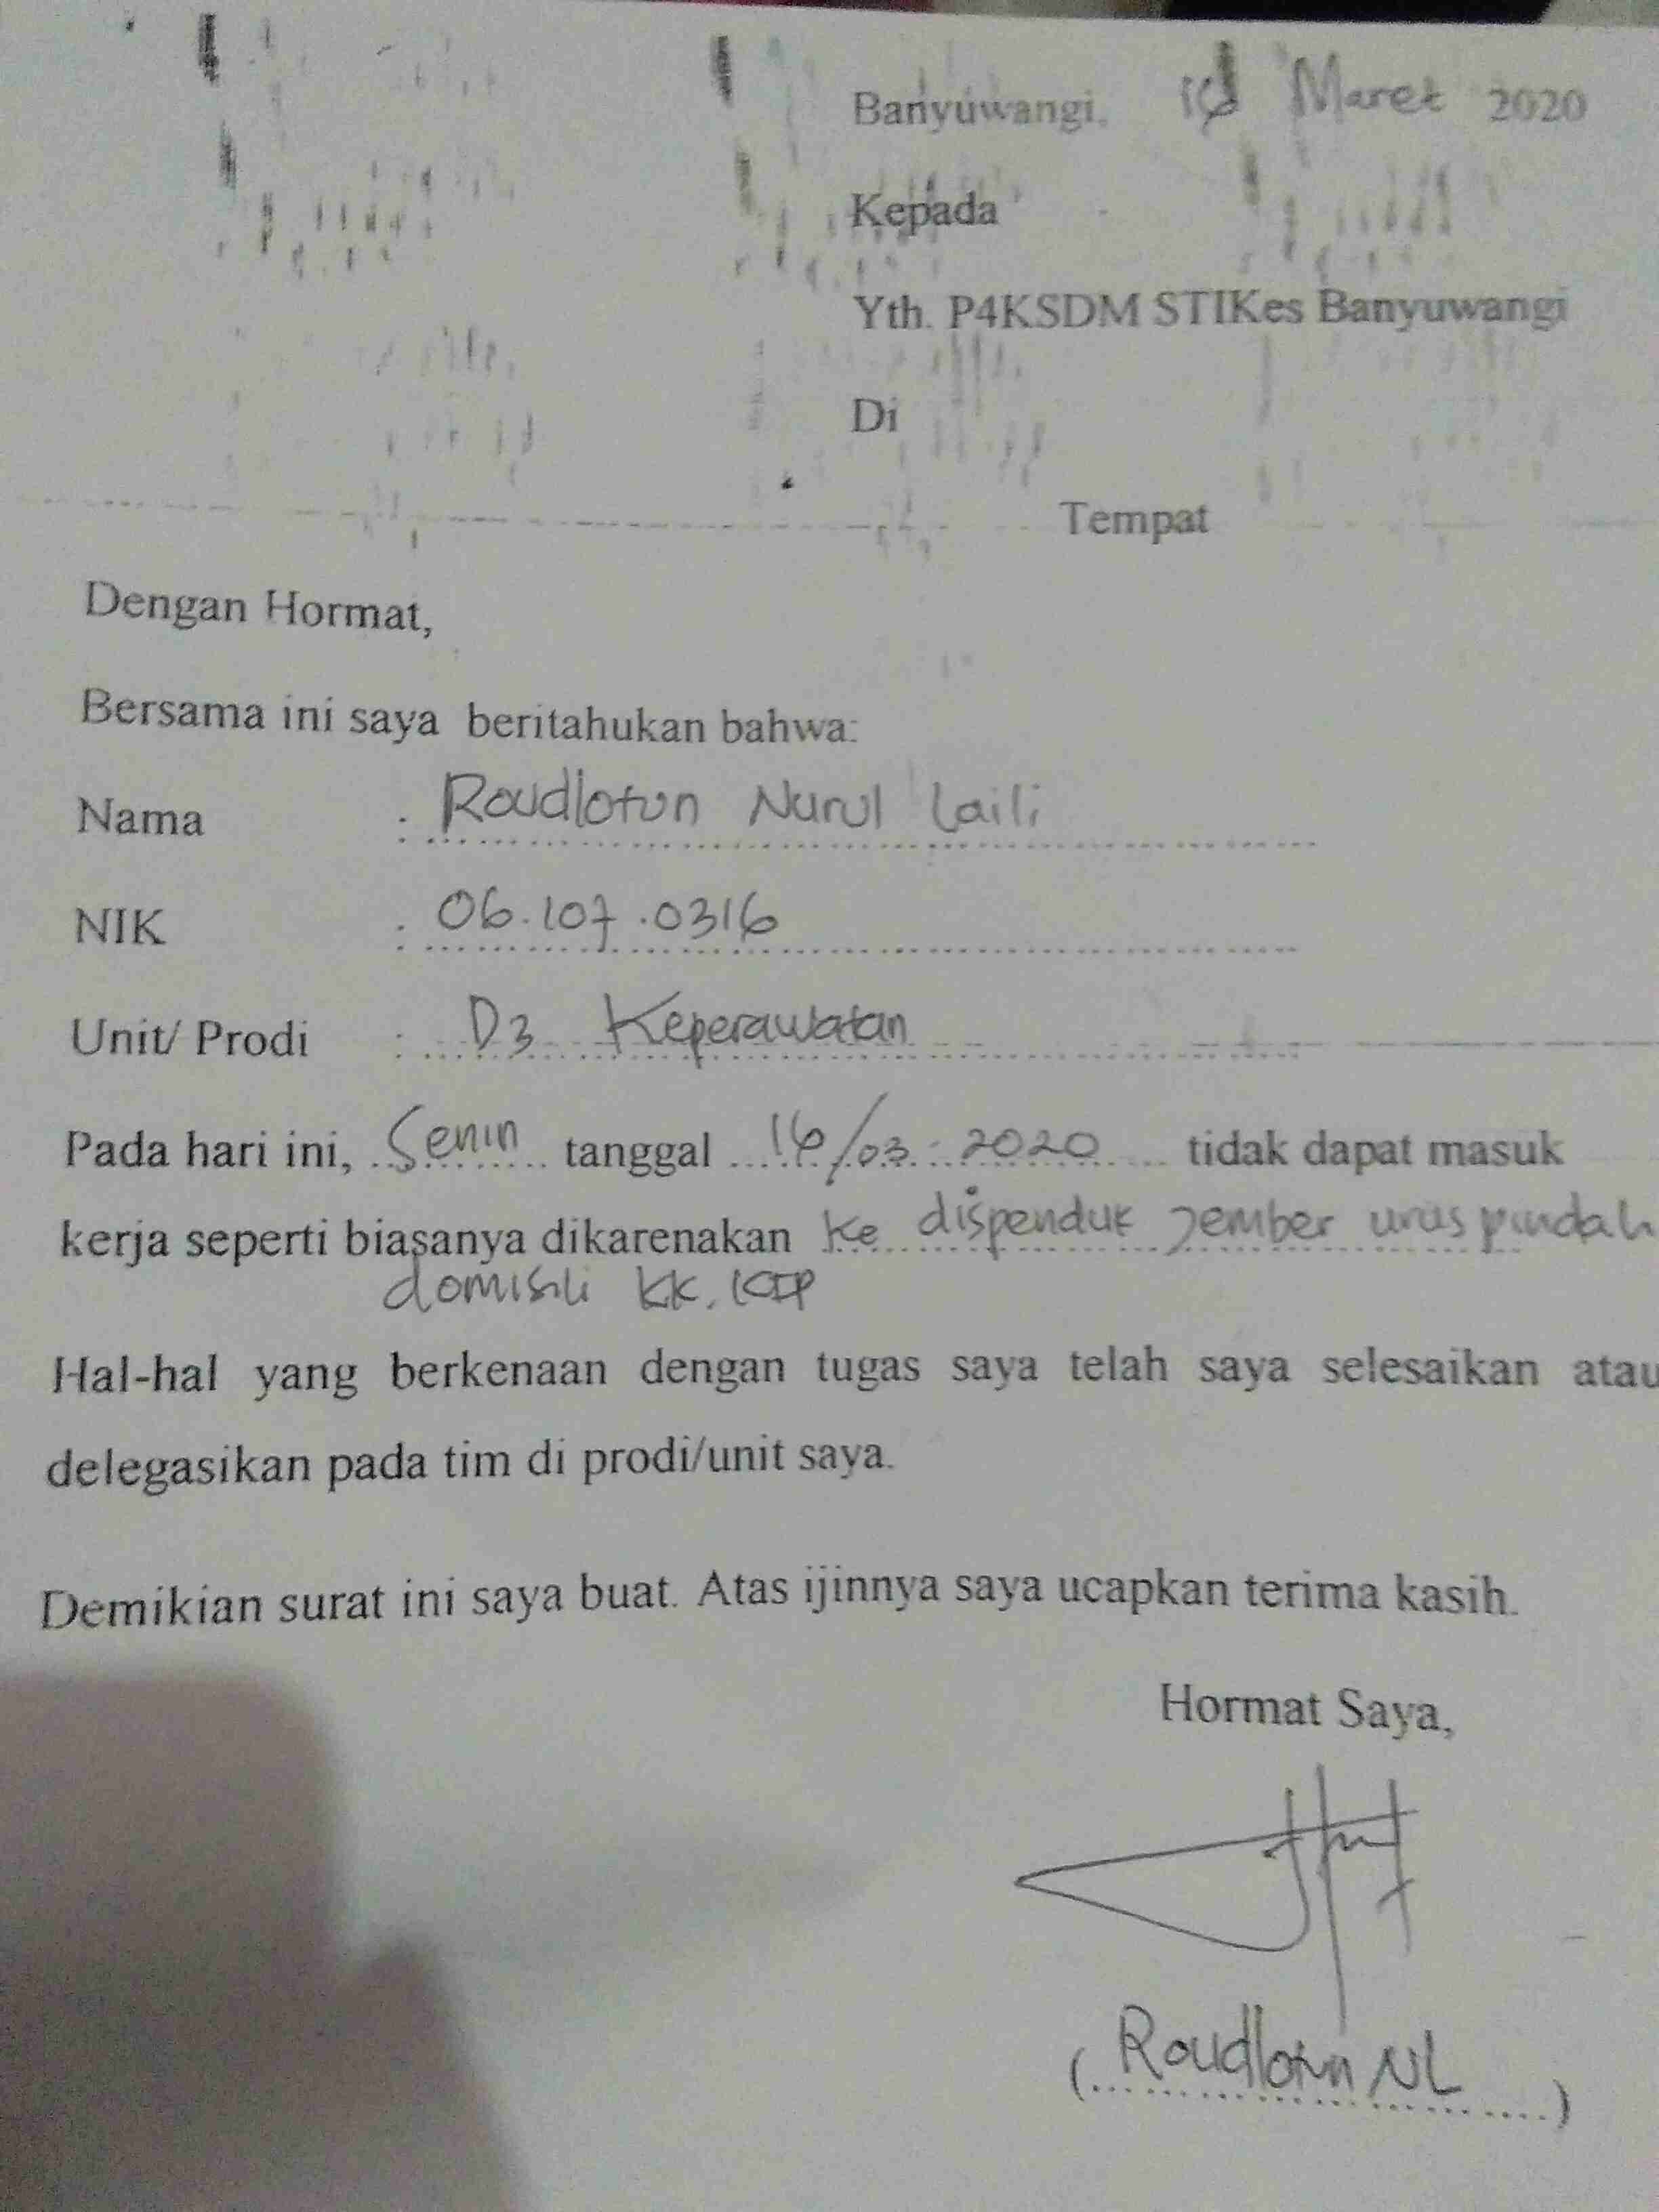 Banyuwangi, Maret 2020
Kepada
Yth. P4KSDM STIKes Banyuwangi
Di
Tempat
Dengan Hormat,
Bersama ini saya beritahukan bahwa:
Nama : Roudlotun Nurul Laili
NIK : 06.107.0316
Unit/ Prodi : D3 Keperawatan
Pada hari ini, Senin tanggal 16/03.2020 tidak dapat masuk
kerja seperti biasanya dikarenakan ke dispenduk Jember urus pindah
domisili KK, KTP
Hal-hal yang berkenaan dengan tugas saya telah saya selesaikan atau
delegasikan pada tim di prodi/unit saya.
Demikian surat ini saya buat. Atas ijinnya saya ucapkan terima kasih.
Hormat Saya,
(Roudlotun NL)